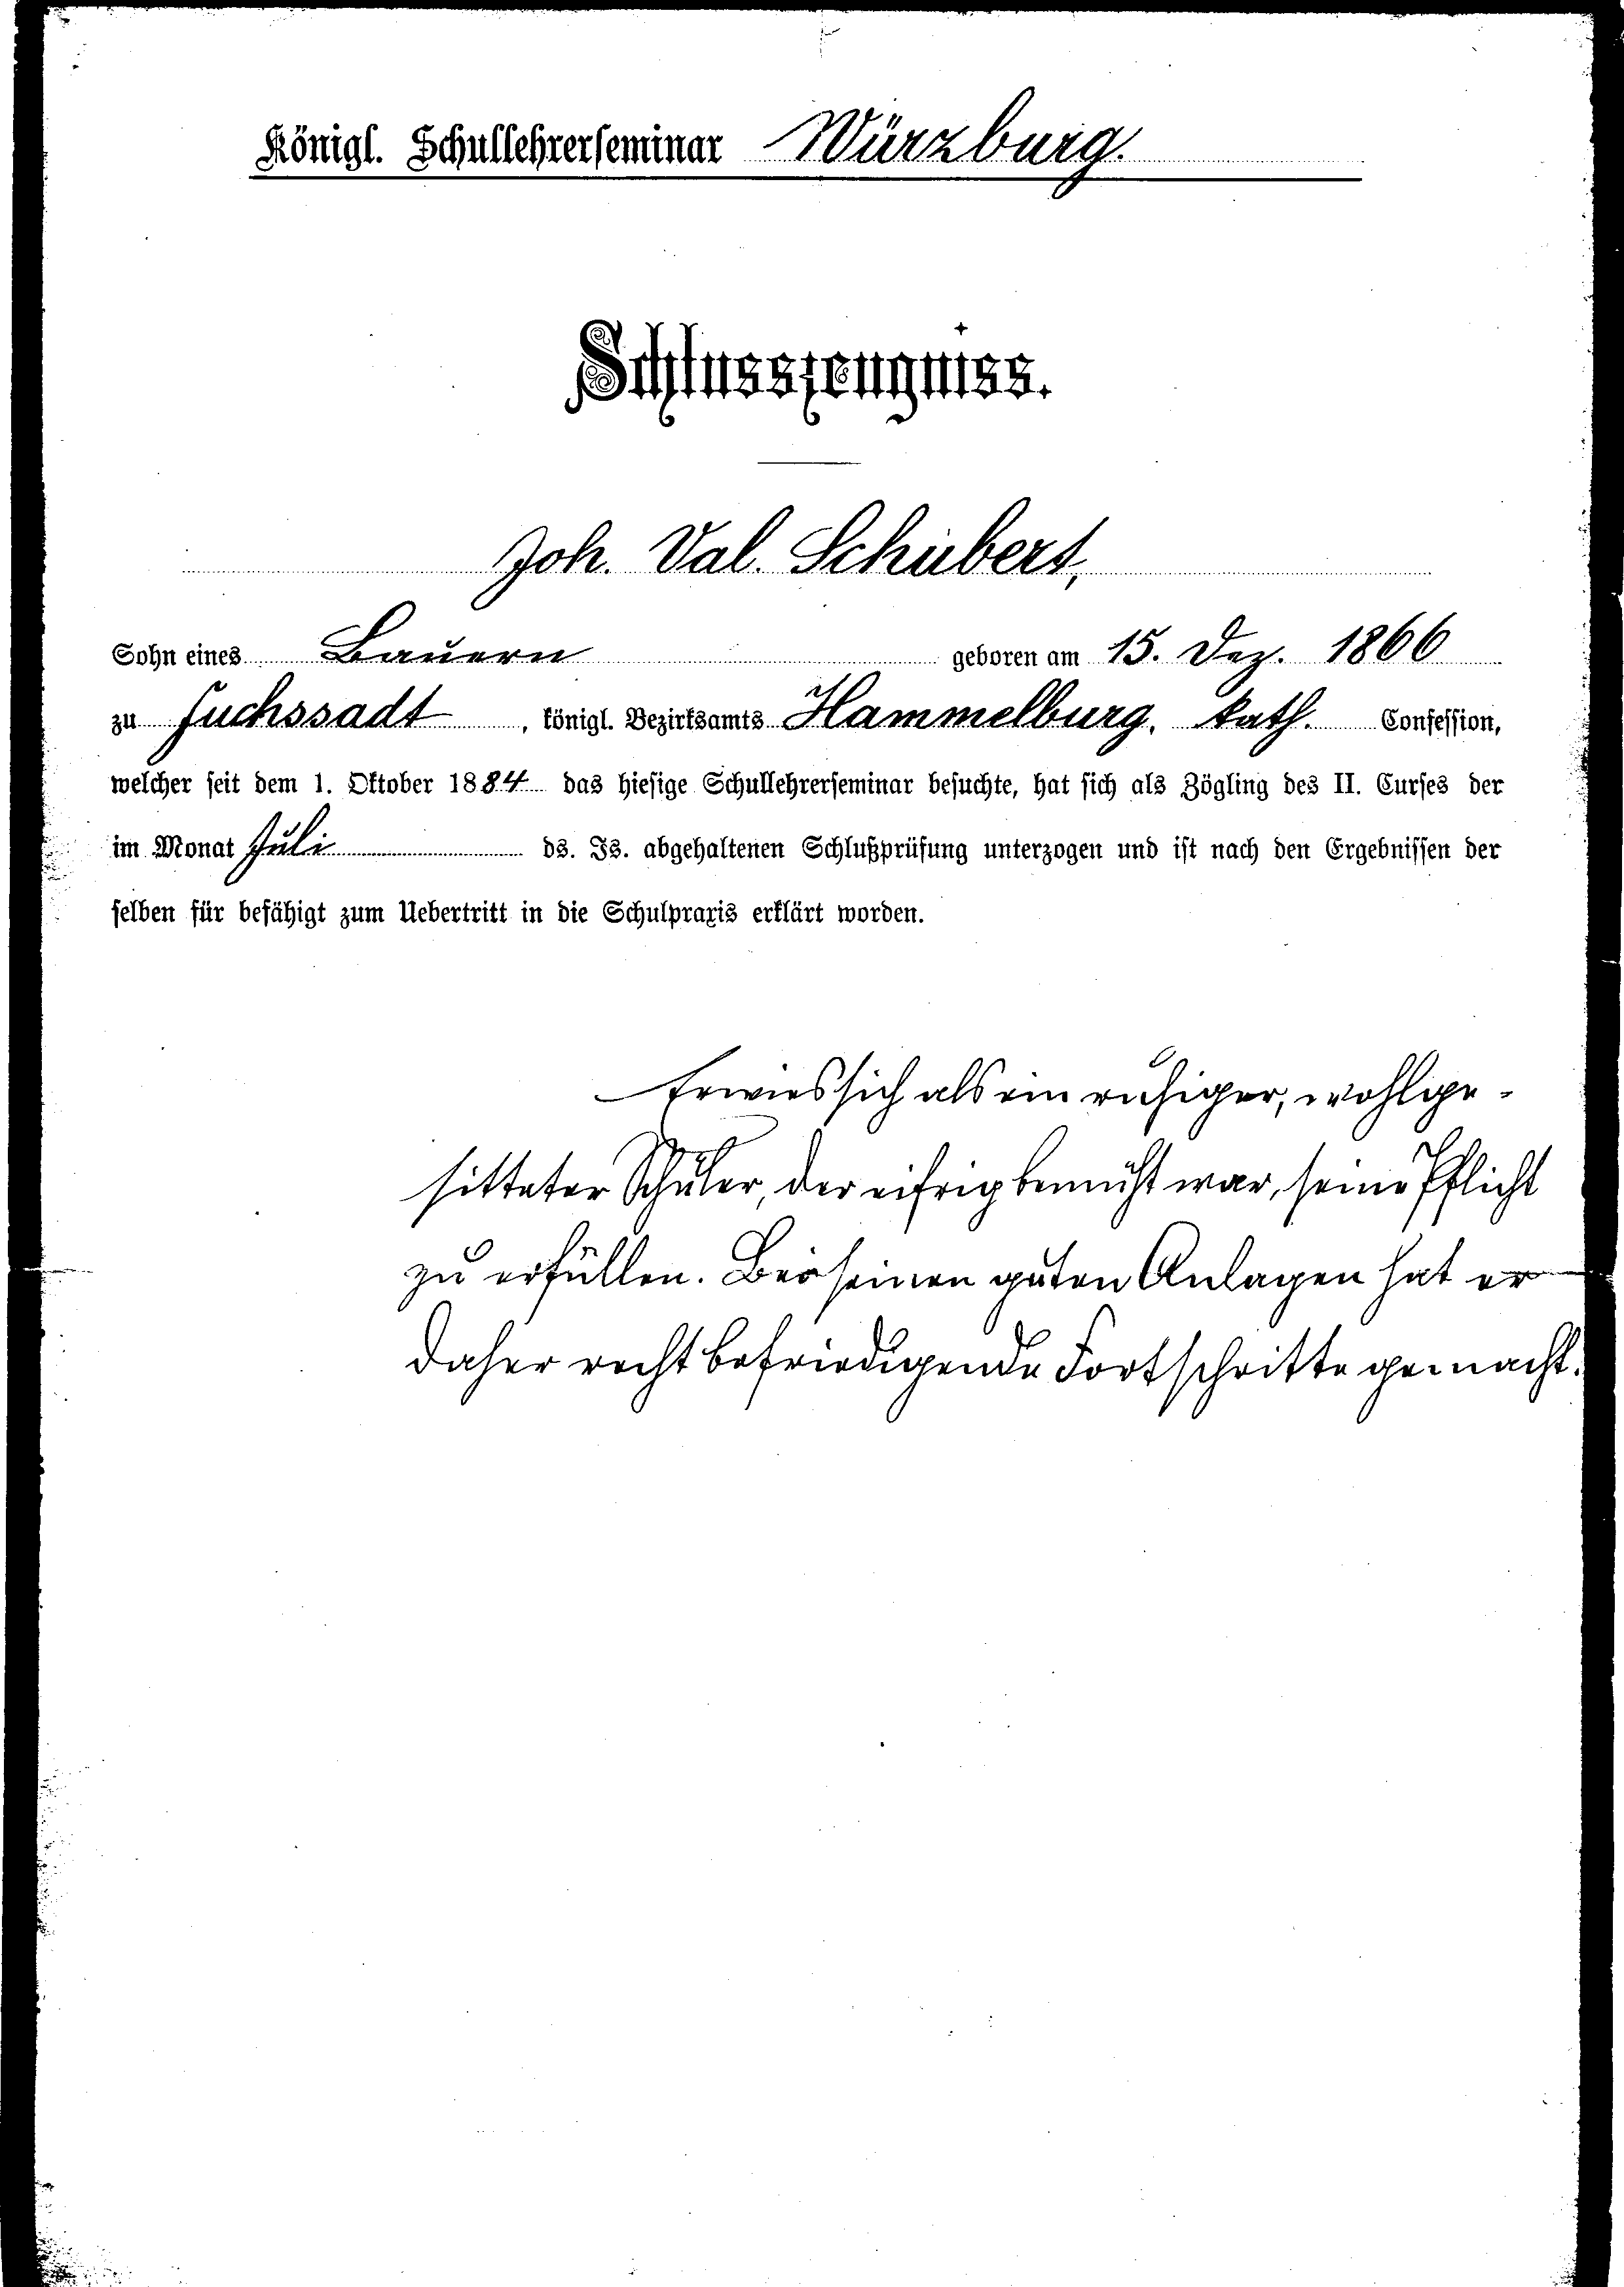 Königl. Schullehrerseminar Würzburg.
Schlusszeugniss.
Joh. Val. Schubert,
Sohn eines Bauern geboren am 15. Dez. 1866
zu Fuchssadt, königl. Bezirksamts Hammelburg, kath. Confession,
welcher seit dem 1. Oktober 1884 das hiesige Schullehrerseminar besuchte, hat sich als Zögling des II. Curses der
im Monat Juli ds. Js. abgehaltenen Schlußprüfung unterzogen und ist nach den Ergebnissen der
selben für befähigt zum Uebertritt in die Schulpraxis erklärt worden.
Erwies sich als ein ruhiger, wohlge-
sitteter Schüler, der eifrig bemüht war, seine Pflicht
zu erfüllen. Bei seinen guten Anlagen hat er
daher recht befriedigende Fortschritte gemacht.